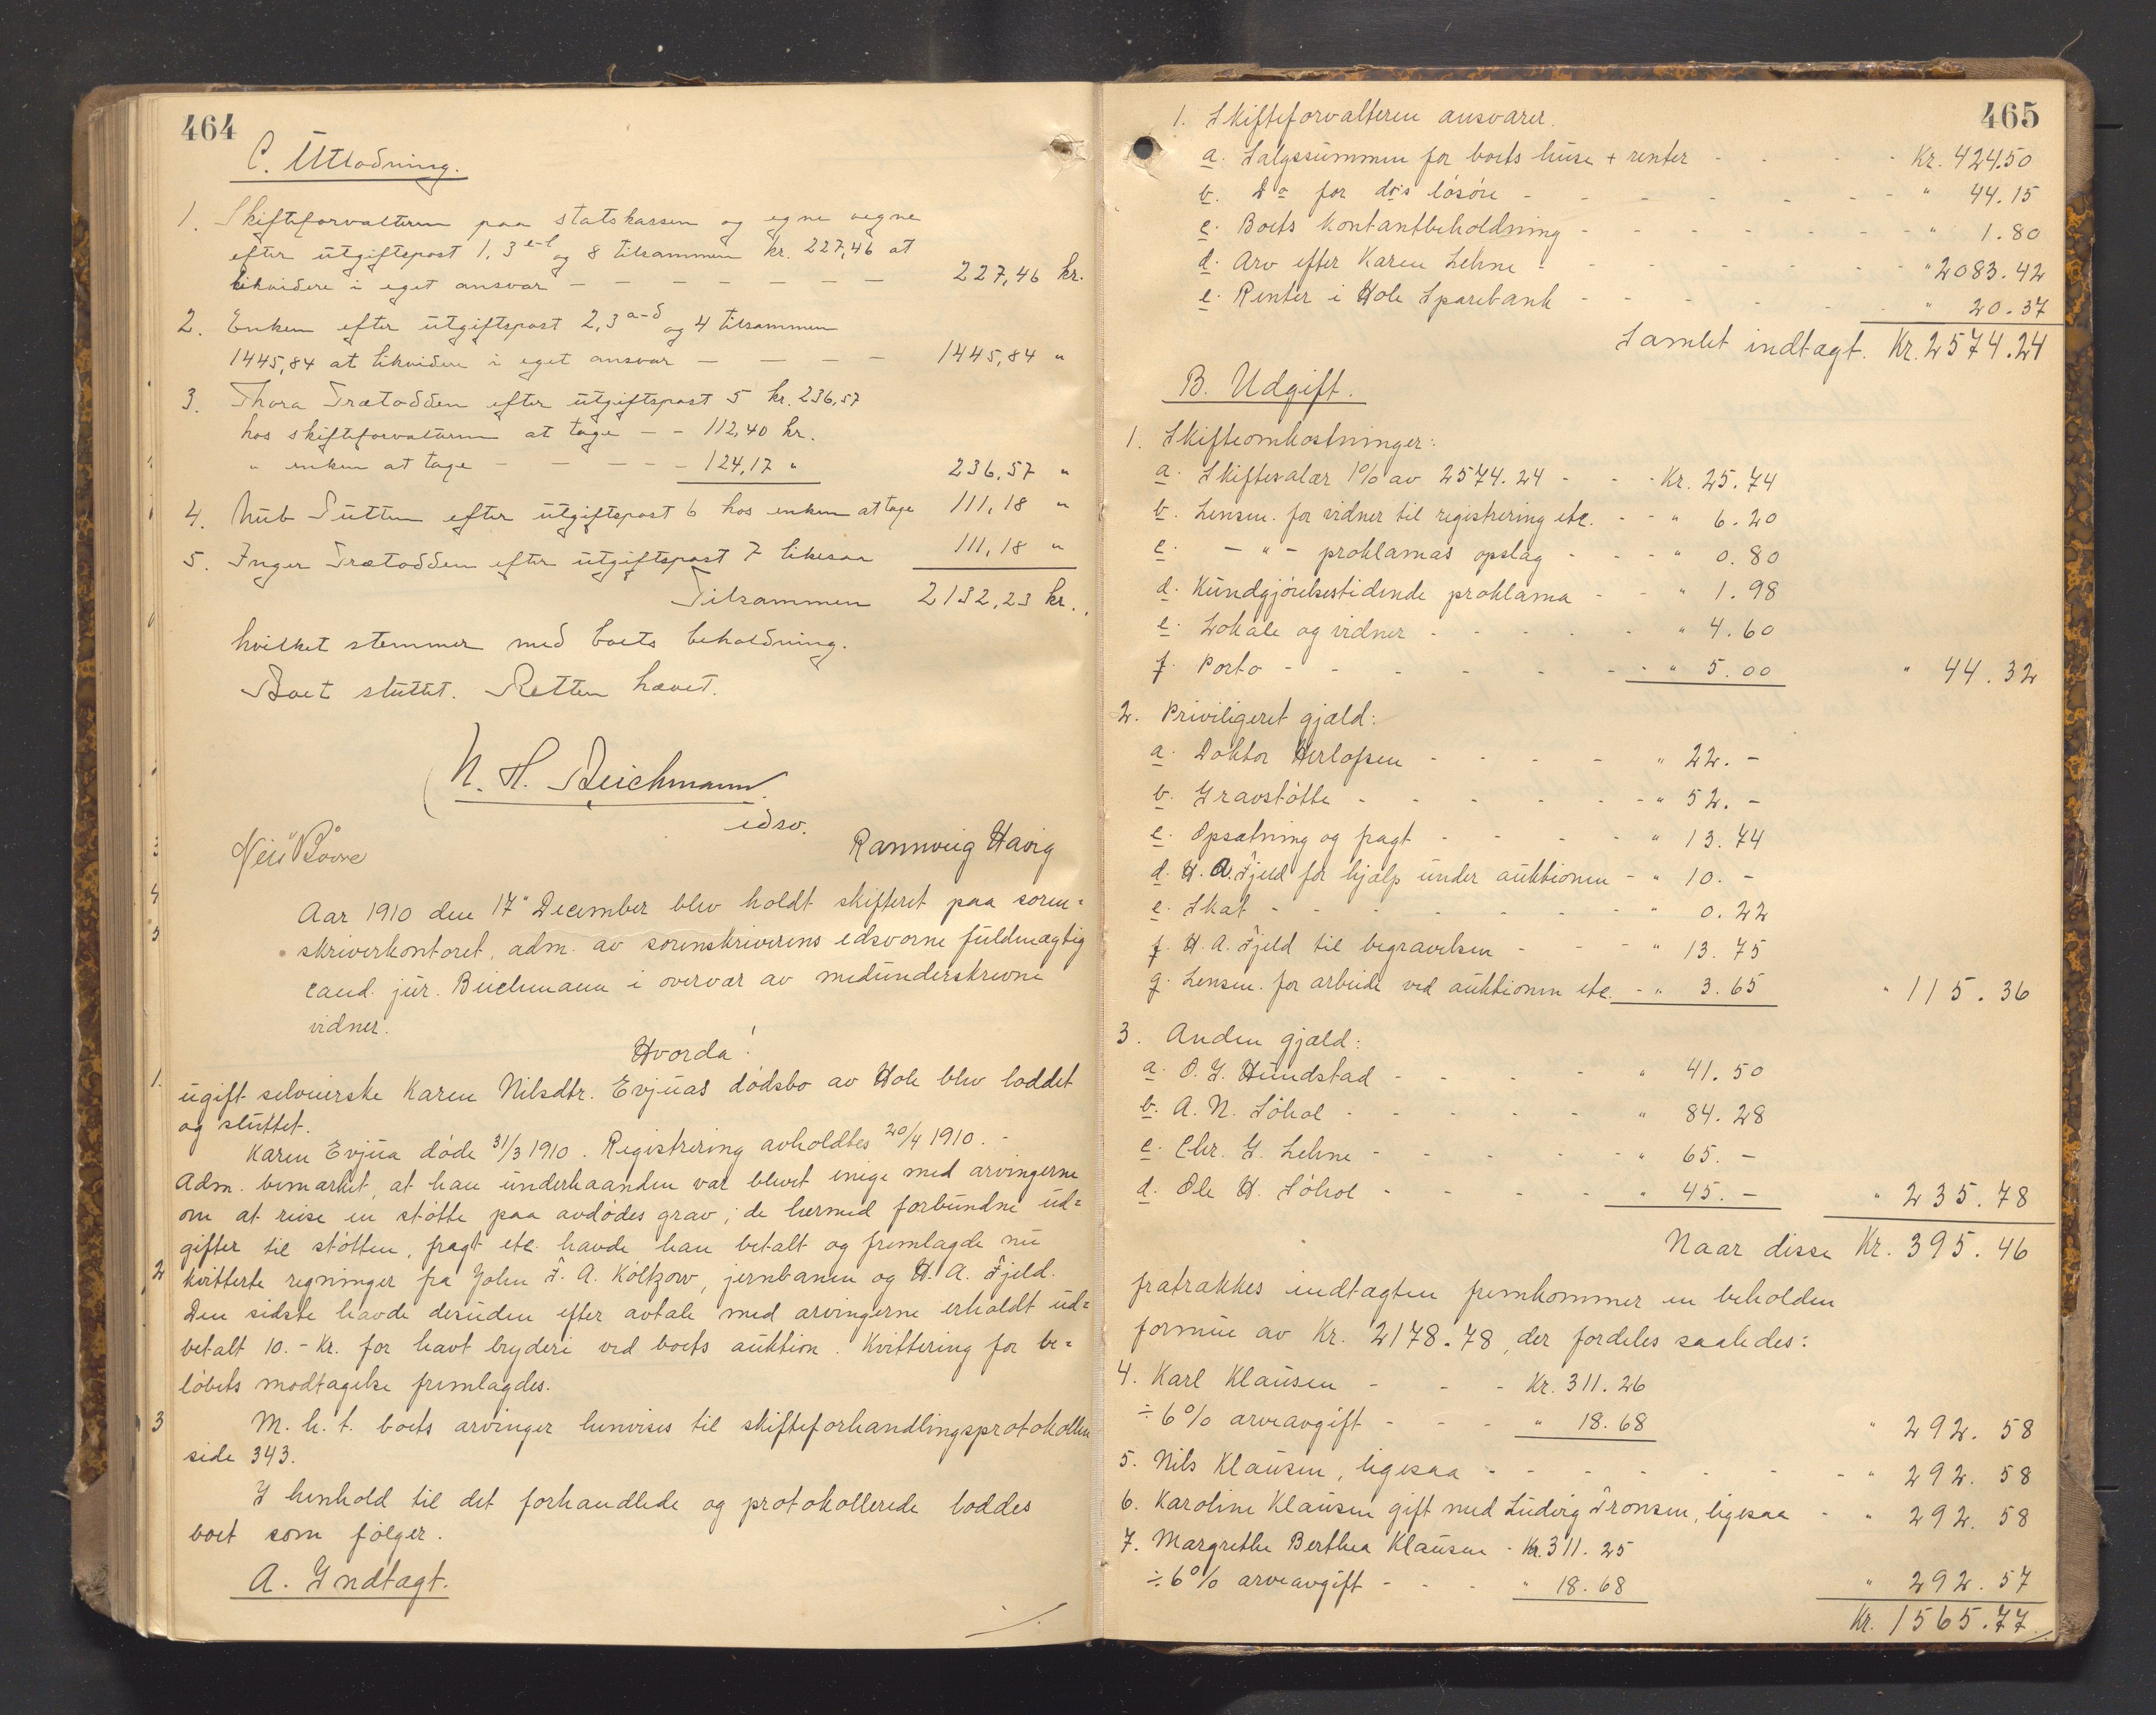 464
C. Utlodning.
1. Skifteforvalteren paa statskassen og egne vegne
efter utgiftspost 1, 3 e-l og 8 tilsammen kr. 227,46 at
likvidere i eget ansvar – – – – – – – 227,46 kr.
2. Enken efter utgiftspost 2, 3 a-d og 4 tilsammen
1445,84 at likvidere i eget ansvar – – – – 1445,84 "
3. Thora Trætodden efter utgiftspost 5 kr. 236,57
hos skifteforvalteren at tage – – 112,40 kr.
" enken at tage – – – – – 124,17 " 236,57 "
4. Nub Sutten efter utgiftspost 6 hos enken at tage 111,18 "
5. Inger Trætodden efter utgiftspost 7 likesaa 111,18 "
Tilsammen 2132,23 kr.
hvilket stemmer med boets beholdning.
Boet sluttet. Retten hævet.
N. H. Beichmann
edsv.
Rannveig Havig
Aar 1910 den 17" December blev holdt skifteret paa soren=
skriverkontoret, adm. av sorenskriverens edsvorne fuldmægtig
cand. jur. Beichmann i overvær av medunderskrevne
vidner.
Hvorda!
1. ugift selveierske Karen Nilsdtr. Evjuas dødsbo av Hole blev loddet
og sluttet.
Karen Evjua døde 31/3 1910. Registrering avholdtes 20/4 1910. -
Adm. bemærket, at han underhaanden var blevet enige med arvingerne
om at reise en støtte paa avdødes grav; de hermed forbundne ud=
gifter til støtten, fragt etc. havde han betalt og fremlagde nu
2 kvitterte regninger fra John F. A. Koltzow, jernbanen og H. A. Fjeld.
Den sidste havde desuden efter avtale med arvingerne erholdt ud=
betalt 10.- Kr. for havt bryderi ved boets auktion. Kvittering for be=
løbets modtagelse fremlagdes.
3 M. h. t. boets arvinger henvises til skifteforhandlingsprotokollen
side 343.
I henhold til det forhandlede og protokollerede loddes
boet som følger.
A. Indtægt.
465
1. Skifteforvalteren ansvarer.
a. Salgssummen for boets huse + renter - - - - Kr. 424.50
b. Do for do's løsøre - - - - - - - " 44.15
c. Boets kontantbeholdning - - - - - - - " 1.80
d. Arv efter Karen Lehne - - - - - - - " 2083.42
e. Renter i Hole Sparebank - - - - - - " 20.37
Samlet indtægt. Kr. 2574.24
B. Udgift.
1. Skifteomkostninger:
a. Skiftesalær 1% av 2574.24 - - - Kr. 25.74
b. Lensm. for vidner til registrering etc. - - " 6.20
c. - " - proklamas opslag - - - " 0.80
d. Kundgjørelsestidende proklama - - " 1.98
e. Lokale og vidner - - - - - " 4.60
f. Porto - - - - - - " 5.00 " 44.32
2. Priviligeret gjæld:
a. Doktor Herlofsen - - - - " 22.-
b. Gravstøtte - - - - - - " 52.-
c. Opsætning og fragt - - - - " 13.74
d. H. A. Fjeld for hjælp under auktionen - " 10.-
e. Skat - - - - - - - " 0.22
f. H. A. Fjeld til begravelsen - - - " 13.75
g. Lensm. for arbeide ved auktionen etc. - " 3.65 " 115.36
3. Anden gjæld:
a. O. G. Hundstad - - - - " 41.50
b. A. N. Søhol - - - - - " 84.28
c. Chr. G. Lehne - - - - - " 65.-
d. Ole H. Søhol - - - - " 45.- " 235.78
Naar disse Kr. 395.46
fratrækkes indtægten fremkommer en beholden
formue av Kr. 2178.78, der fordeles saaledes:
4. Karl Klausen - - - Kr. 311.26
÷ 6% arveavgift - - - " 18.68 " 292.58
5. Nils Klausen, ligesaa - - - - - - - " 292.58
6. Karoline Klausen gift med Ludvig Tronsen, ligesaa - " 292.58
7. Margrethe Berthea Klausen - Kr. 311.25
÷ 6% arveavgift - - - " 18.68 " 292.57
Kr. 1565.77